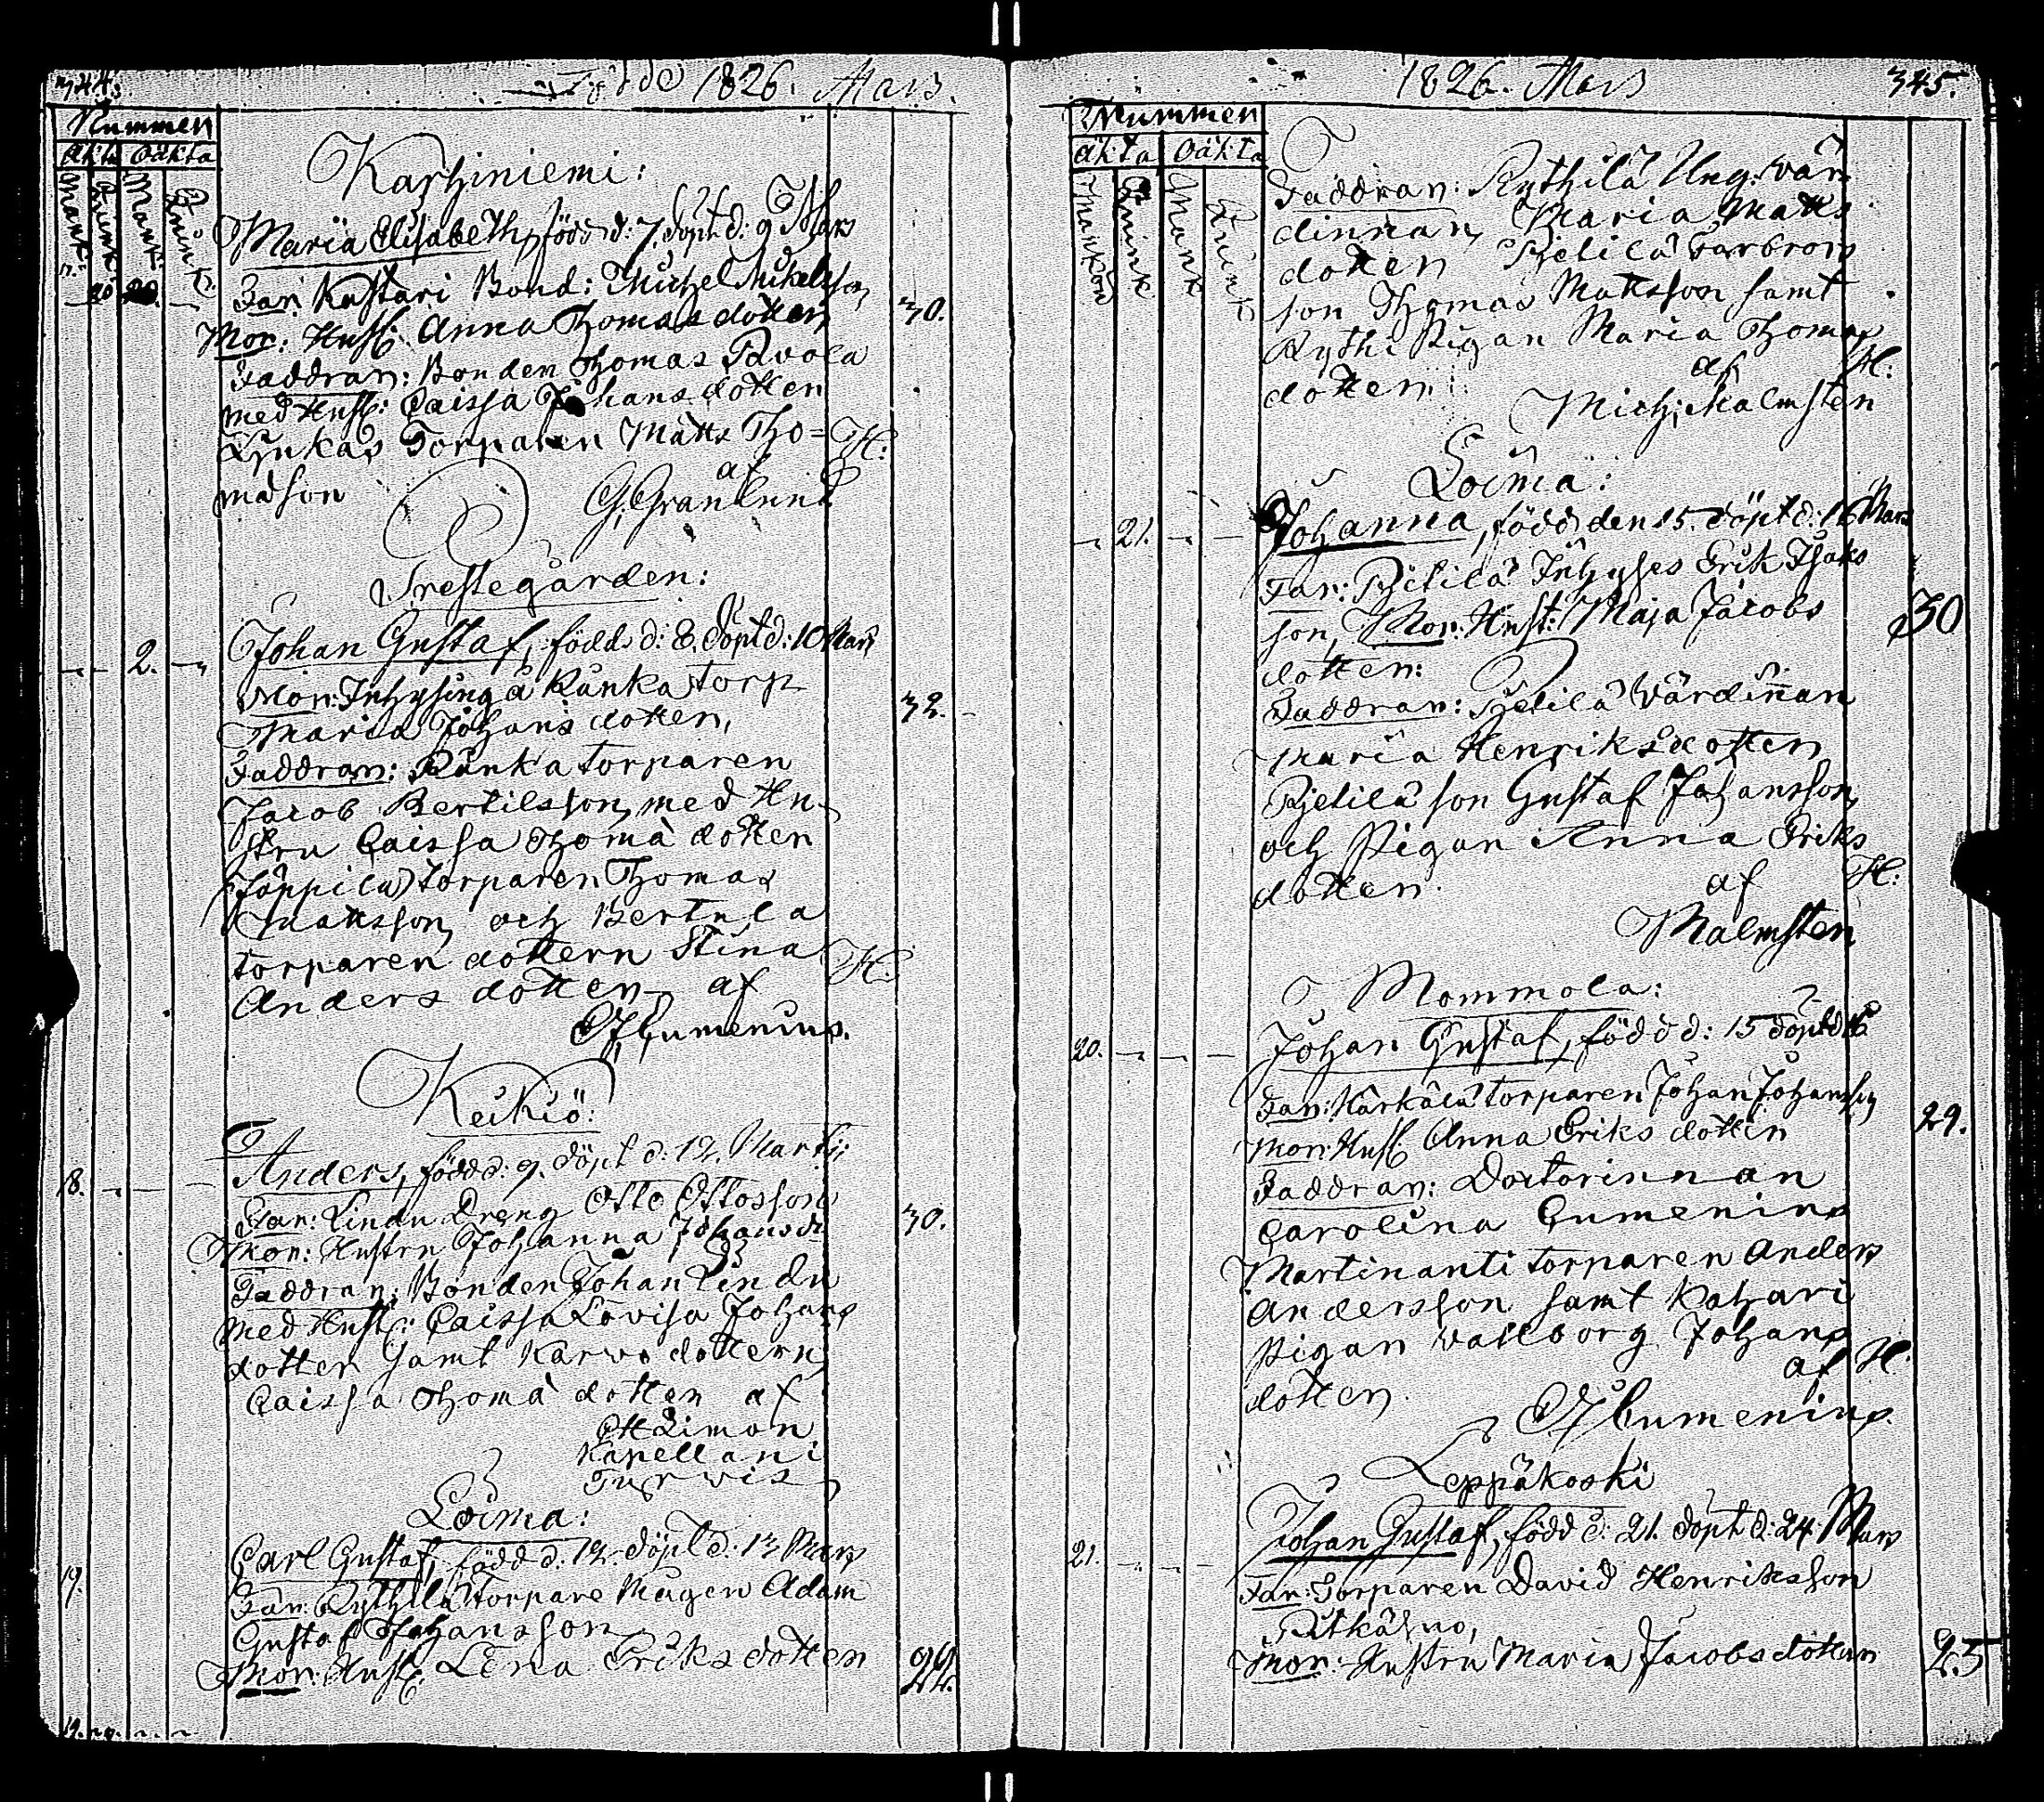 344.
Födde 1826. Mars.
Nummer
Äkta Oäkta
Mank: Quink: Mank: Quink:
Karhiniemi:
Maria Elisabeth, född d: 7. döpt d: 9 Mars
20
Far: Kustari Bond: Michel Mikelsson
30.
Mor: Hust: Anna Thomas dotter
Faddrar: Bonden Thomas Rvola
med Hust: Caissa Johans dotter
Torparen Matts Tho=
H:
masson
af
G. Granlund
Prestegården:
2.
Johan Gustaf, född d: 8. döpt d: 10 Mars
Mor: Inhysing å Runka torp
32.
Maria Johans dotter,
Faddrar: Runka torparen
Jacob Bertilsson, med Hu-
stru Caissa Thomä dotter
Töppilä torparen Thomas
Mattsson, och Bertula
torpare dottern Stina
H:
Anders dotter, af
Cumenius.
Keikiö:
18.
Anders, född d: 9. döpt d: 12. Martii
Far: Lindu Dreng Otto Ottosson
30.
Mor: Hustru Johanna Johansdr
Faddrar: Bonden Johan Lindu
med Hust: Caissa Lovisa Johans
dotter samt Karvo dottern
Caissa Thomä dotter af
Limon
Kapellan i
Loima:
19.
Carl Gustaf, född d: 12. döpt d: 13 Mars
Far: Rythilä Torpare Mågen Adam
Gustaf Johansson
Mor: Hust: Lena Eriks dotter
24.
19.
1826. Mars
345.
Nummer
Äkta Oäkta
Mankön Quink Mank Quink
Faddrar: Rythilä Ung: vär
dinnan, Maria Matts
dotter Pjelilä Farbrors
son Thomas Mattsson samt
Rythi Pigan Maria Thomas
dotter.
af
H:
Mich: Malmsten
Loima:
21.
Johanna, född den 15. döpt d: 16 Mars
Far: Pjelilä Inhyses Erik Isaks
son, Mor: Hust: Maja Jacobs
30
dotter:
Faddrar: Pjelilä Värdinnan
Maria Henriksdotter
Pjelilä son Gustaf Johansson,
och Pigan Anna Eriks
dotter.
af
H:
Malmsten
Mommola:
20.
Johan Gustaf, född d: 15 döpt d 16
Far: Kärkälä torparen Johan Johansson
29.
Mor: Hust: Anna Eriks dotter
Faddrar: Doctorinnan
Carolina Cumenius
Martinanti torparen Anders
Andersson samt Kahari
Pigan Vallborg Johans
dotter
af
H.
Cumenius.
Leppäkoski
21.
Johan Gustaf, född d: 21. döpt d: 24. Mars
Far: Torparen David Henriksson
Pitkäsuo,
Mor: Hustru Maria Jacobsdotter
25